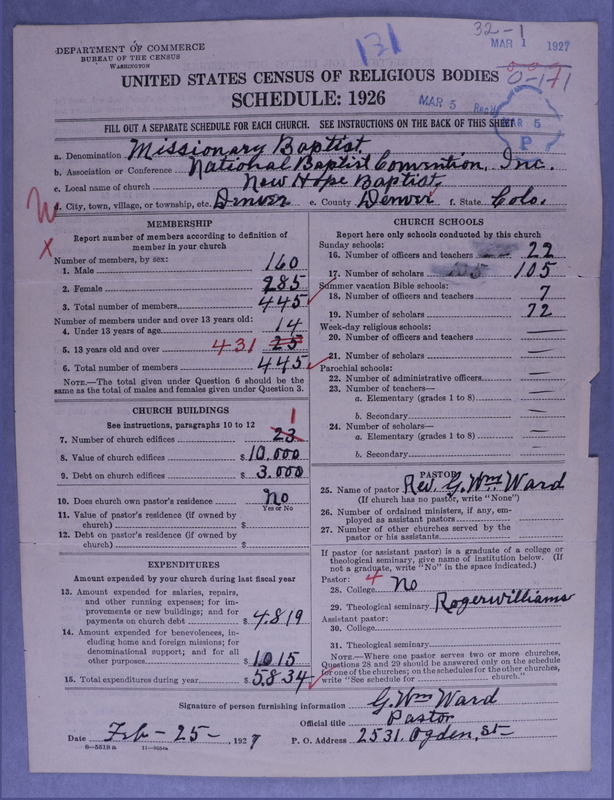 32-1
MAR 1 1927
131
DEPARTMENT OF COMMERCE
BUREAU OF THE CENSUS
WASHINGTON
UNITED STATES CENSUS OF RELIGIOUS BODIES
0-171
SCHEDULE: 1926
MAR 5 Rec'd
MAR 5
P
FILL OUT A SEPARATE SCHEDULE FOR EACH CHURCH. SEE INSTRUCTIONS ON THE BACK OF THIS SHEET
a. Denomination Missionary Baptist
b. Association or Conference National Baptist Convention, Inc.
c. Local name of church New Hope Baptist.
d. City, town, village, or township, etc. Denver e. County Denver f. State Colo.
MEMBERSHIP
Report number of members according to definition of
member in your church
X
Number of members, by sex:
1. Male 160
2. Female 285
3. Total number of members 445
Number of members under and over 13 years old:
4. Under 13 years of age 14
5. 13 years old and over 431 25
6. Total number of members 445
NOTE.—The total given under Question 6 should be the
same as the total of males and females given under Question 3.
CHURCH BUILDINGS
See instructions, paragraphs 10 to 12
1
7. Number of church edifices 23
8. Value of church edifices $10.000
9. Debt on church edifices $3.000
10. Does church own pastor's residence No
Yes or No
11. Value of pastor's residence (if owned by
church) $
12. Debt on pastor's residence (if owned by
church) $
EXPENDITURES
Amount expended by your church during last fiscal year
13. Amount expended for salaries, repairs,
and other running expenses; for im-
provements or new buildings; and for
payments on church debt $4.819
14. Amount expended for benevolences, in-
cluding home and foreign missions; for
denominational support; and for all
other purposes $1015
15. Total expenditures during year $5.834
CHURCH SCHOOLS
Report here only schools conducted by this church
Sunday schools:
16. Number of officers and teachers 22
17. Number of scholars 105 105
Summer vacation Bible schools:
18. Number of officers and teachers 7
19. Number of scholars 72
Week-day religious schools:
20. Number of officers and teachers —
21. Number of scholars —
Parochial schools:
22. Number of administrative officers —
23. Number of teachers—
a. Elementary (grades 1 to 8) —
b. Secondary —
24. Number of scholars—
a. Elementary (grades 1 to 8) —
b. Secondary —
PASTOR
25. Name of pastor Rev. G. Wm Ward
(If church has no pastor, write "None")
26. Number of ordained ministers, if any, em-
ployed as assistant pastors
27. Number of other churches served by the
pastor or his assistants
If pastor (or assistant pastor) is a graduate of a college or
theological seminary, give name of institution below. (If
not a graduate, write "No" in the space indicated.)
Pastor: 4
28. College No
29. Theological seminary Rogerwilliams
Assistant pastor:
30. College
31. Theological seminary
NOTE.—Where one pastor serves two or more churches,
Questions 28 and 29 should be answered only on the schedule
for one of the churches; on the schedules for the other churches,
write "See schedule for church."
Signature of person furnishing information G. Wm Ward
Official title Pastor
Date Feb - 25 -, 1927 P. O. Address 2531. Ogden, St-